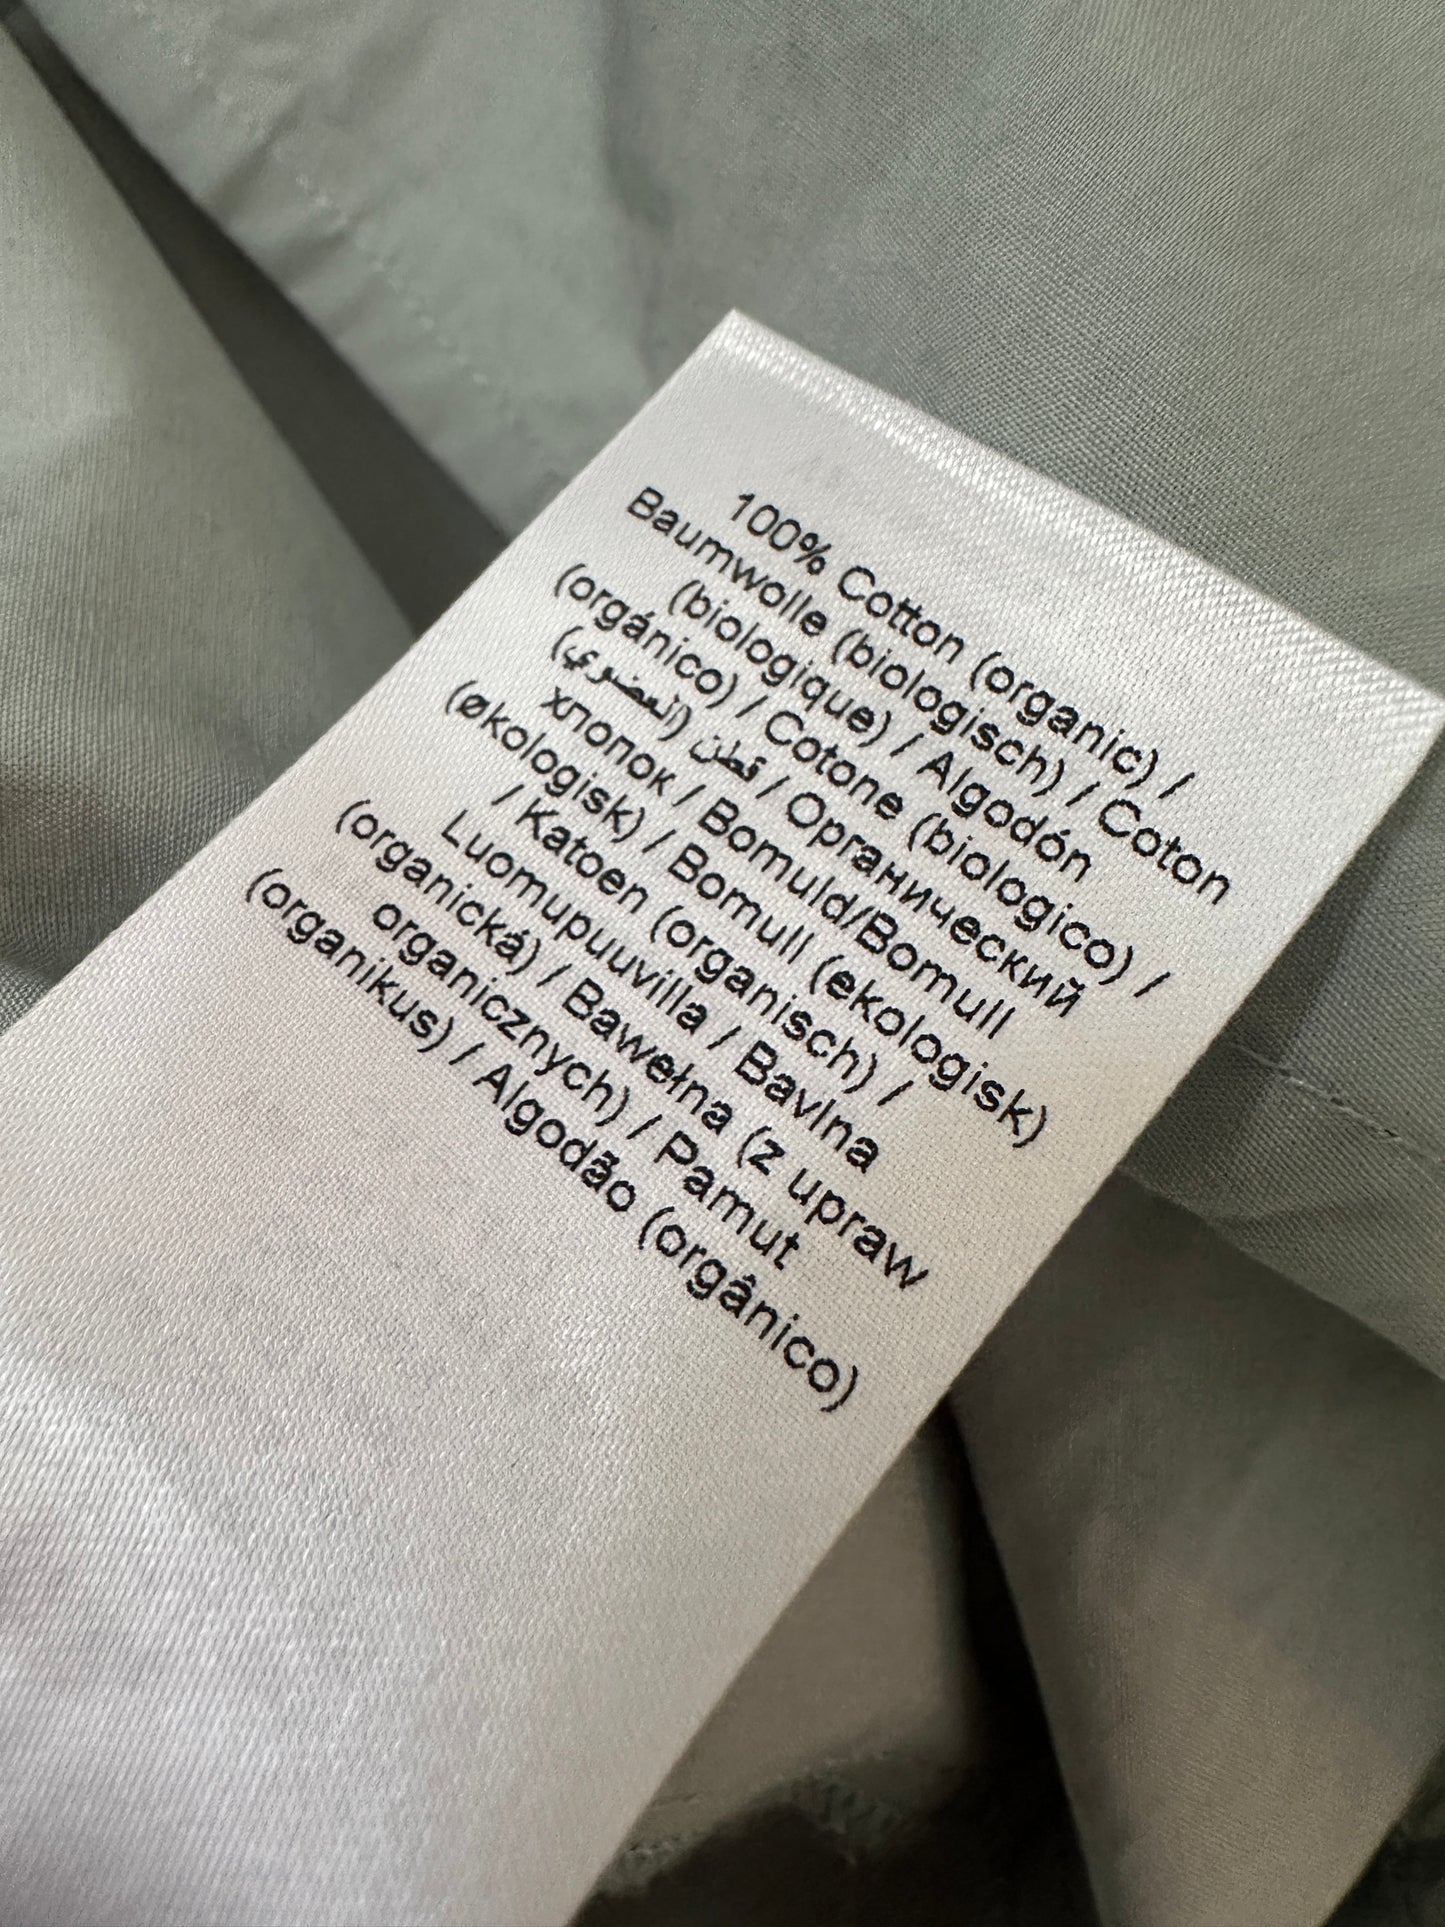 100% Cotton (organic) /
Baumwolle (biologisch) / Coton
(biologique) / Algodón
(orgánico) / Cotone (biologico) /
قطن (العضوي) / Органический
хлопок / Bomuld/Bomull
(økologisk) / Bomull (ekologisk)
/ Katoen (organisch) /
Luomupuuvilla / Bavlna
(organická) / Bawełna (z upraw
organicznych) / Pamut
(organikus) / Algodão (orgânico)